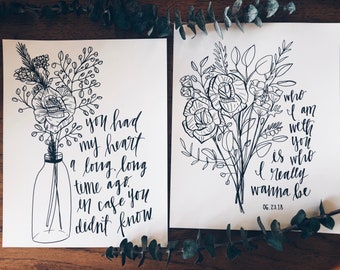 you had
my heart
a long, long
time ago
in case you
didn't know
who
I am
with
you
is who
I really
wanna be
06.23.18